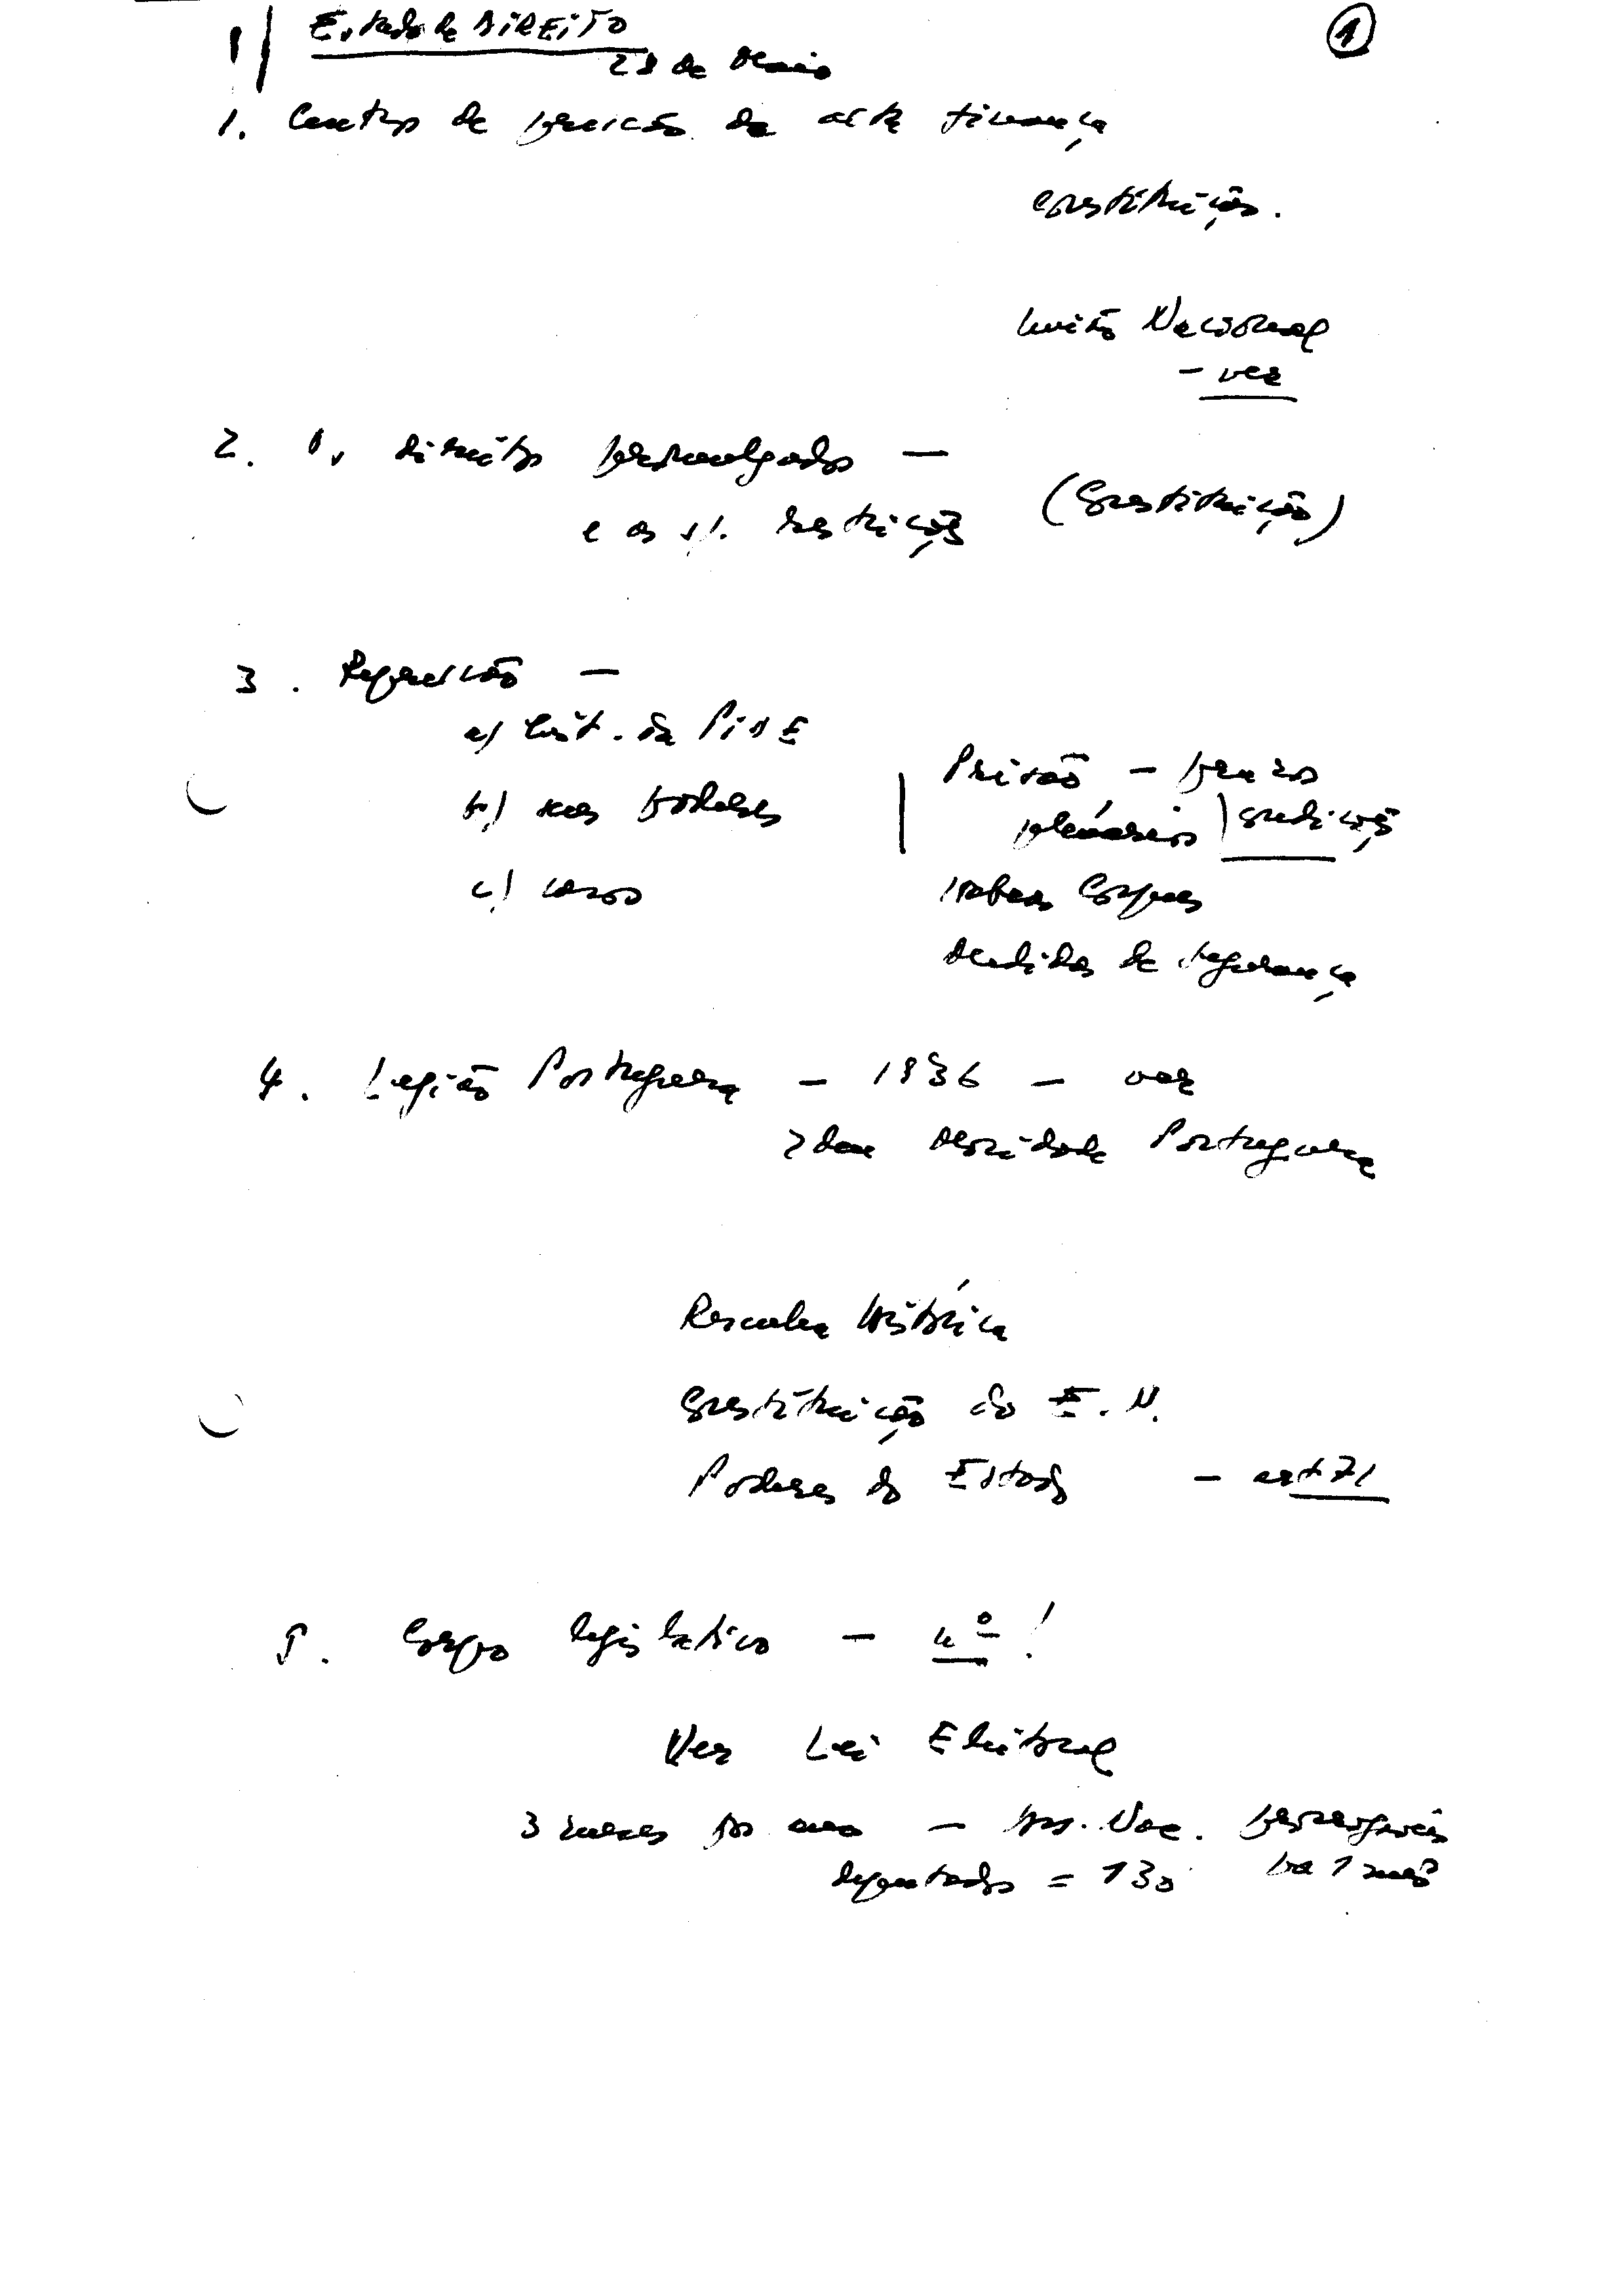 1/ Estado de DIREITO
①
28 de Maio
1. Centros de pressão da alta finança
Constituição.
União Nacional
- ver
2. Os direitos promulgados -
e as s/. restrições (Constituição)
3. Repressão -
a) Inst. da PIDE
b) seus poderes
c) casos
Prisão - prazos
plenários | condições
Habeas Corpus
Medidas de segurança
4. Legião Portuguesa - 1936 - ver
Idem Mocidade Portuguesa
Resenha Histórica
Constituição do E.N.
Poderes do Estado - art 71
5. Corpo legislativo - nº!
Ver Lei Eleitoral
3 meses por ano - Ass. Nac. prorrogáveis
por 1 mês
deputados = 130